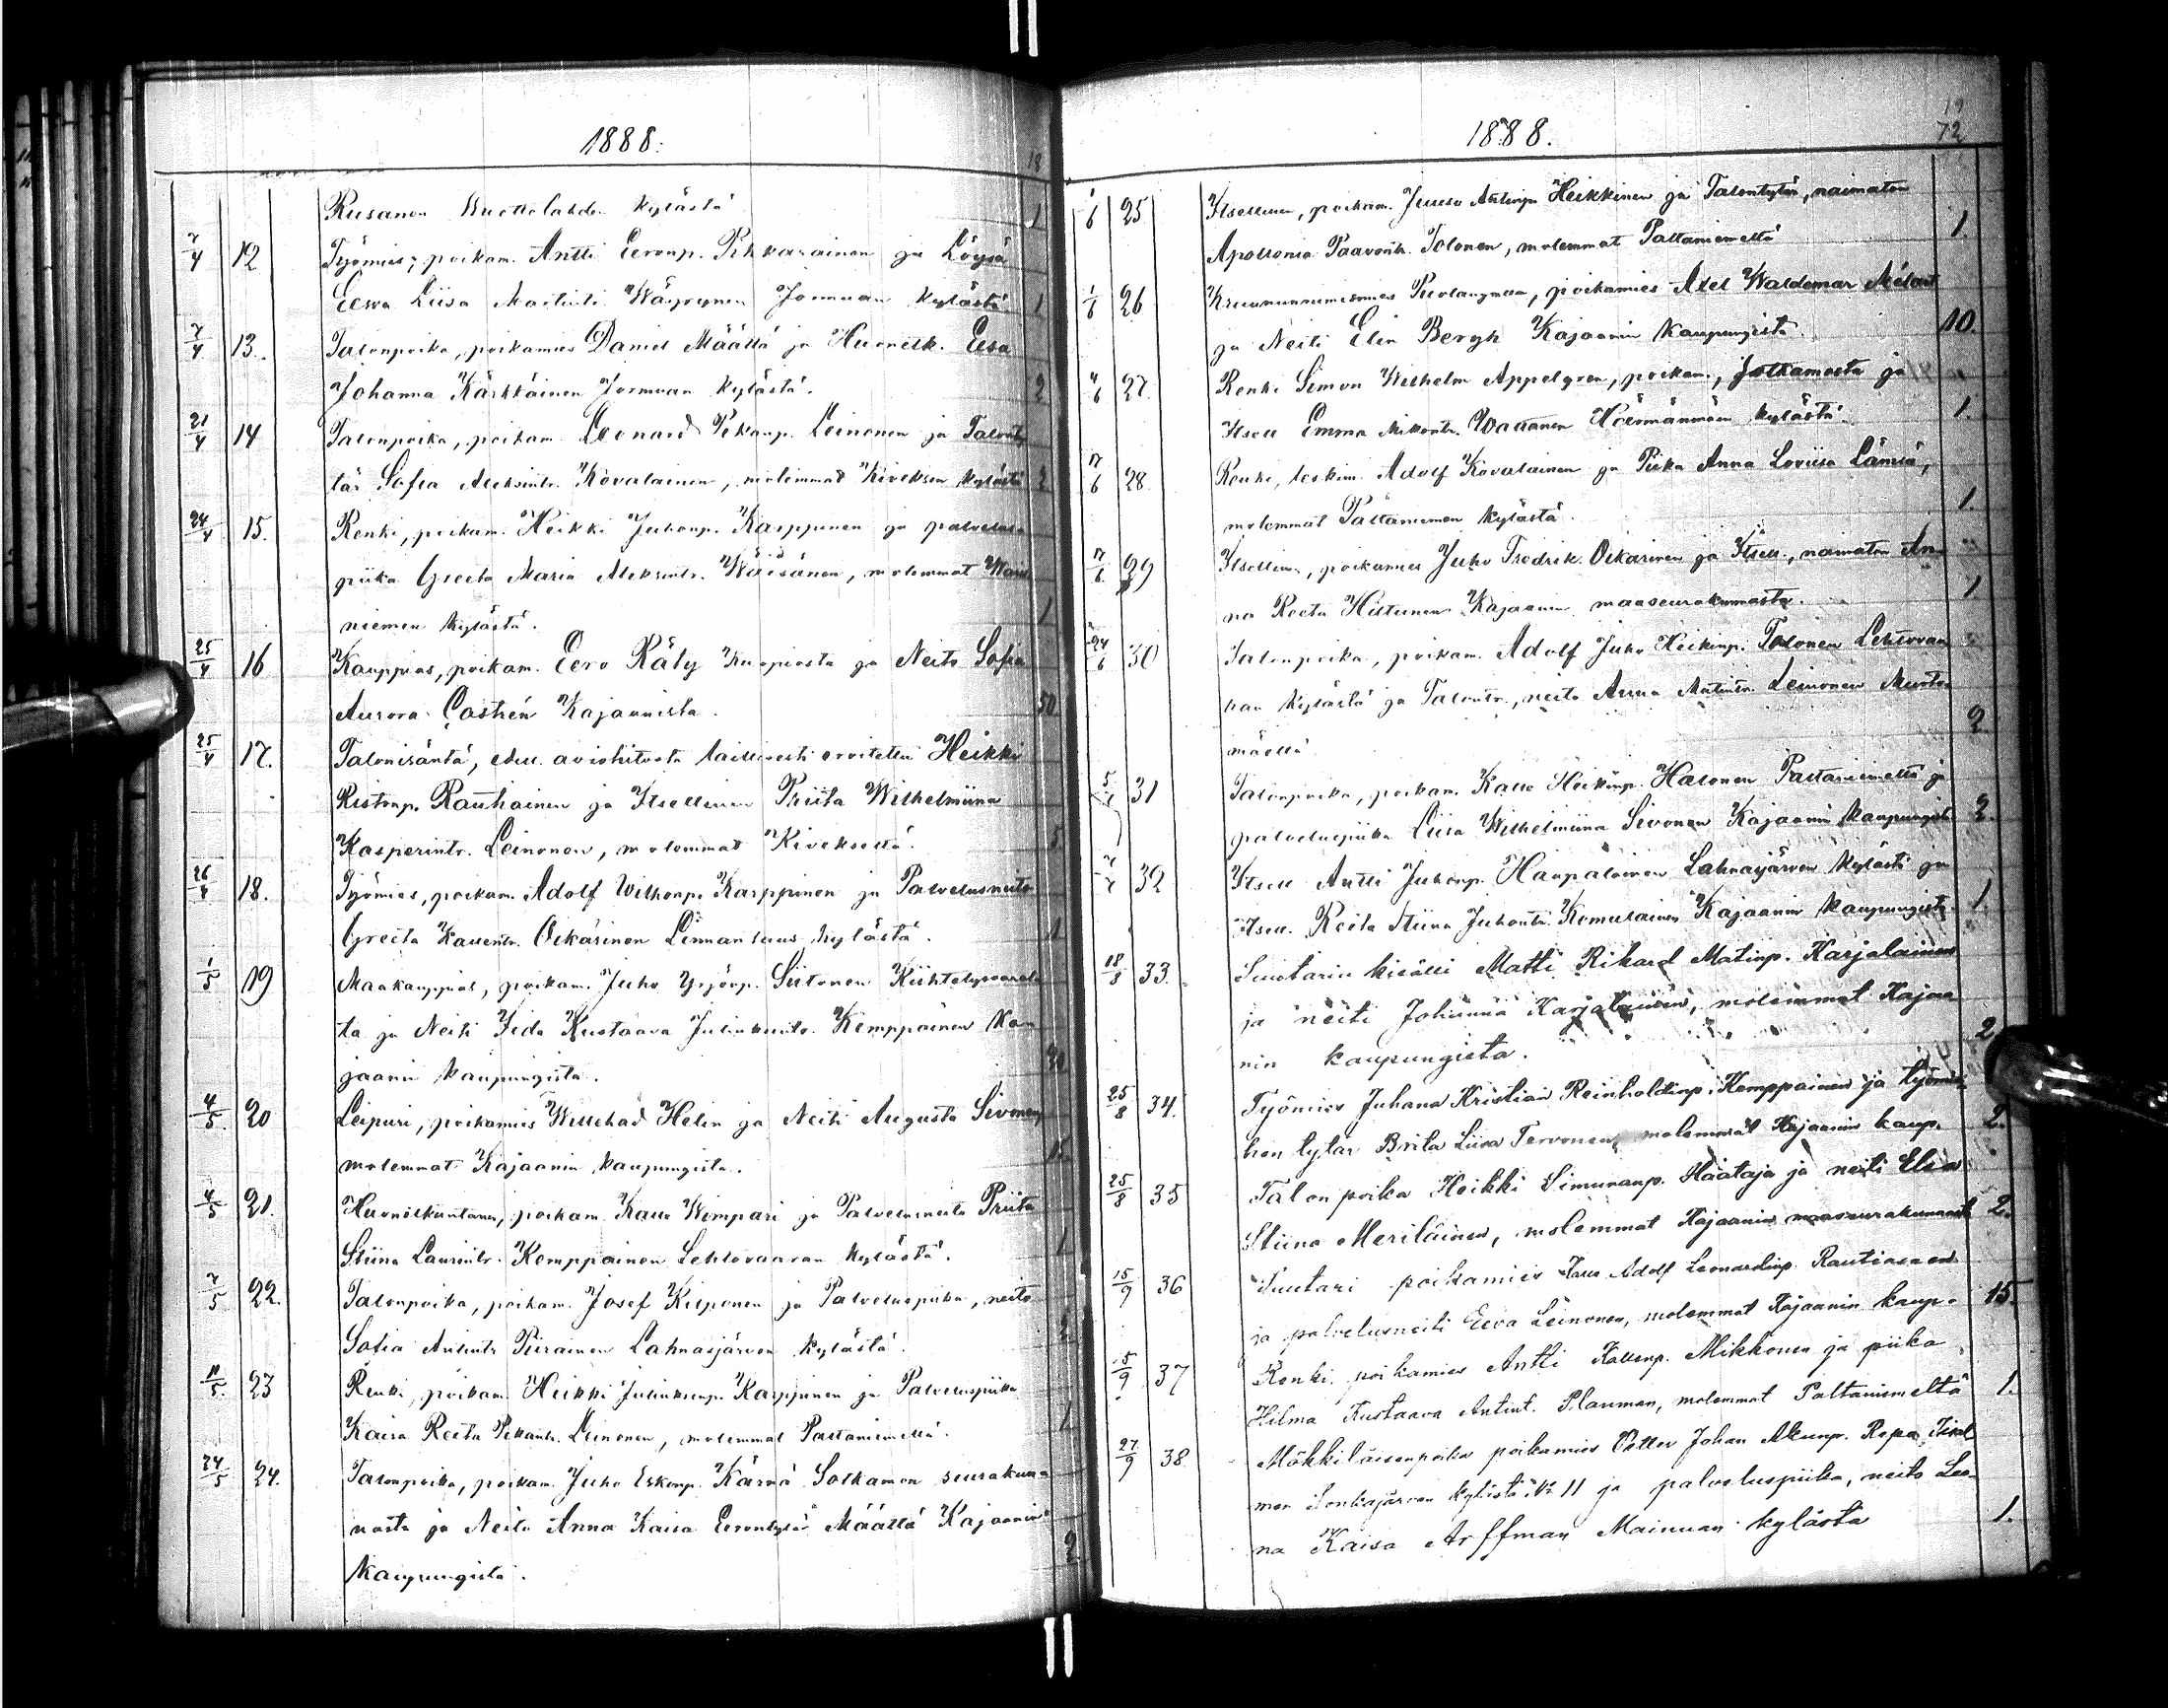 1888.
18
Rusanen Vuottolahden kylästä 1
7/4 12 Työmies, poikam. Antti Eeronp. Pikkarainen ja Löysä
Eewa Liisa Martintr. Wäyrynen Jormuan kylästä 1
7/4 13. Talonpoika, poikamies Daniel Määttä ja Huonelk. Eeva
Johanna Kärkkäinen Jormuan kylästä. 2
21/4 14 Talonpoika, poikam. Leonard Pekanp. Leinonen ja Talonty
tär Sofia Aleksintr. Kovalainen, molemmat Kiveksen kylästä 2
24/4 15. Renki, poikam. Heikki Juhonp. Karppinen ja palvelus
piika Greeta Maria Aleksintr. Wäisänen, molemmat
niemen kylästä. 1
25/4 16 Kauppias, poikam. Eero Räty Kuopiosta ja Neito Sofia
Aurora Castrén Kajaanista. 50.
25/4 17. Talonisäntä, avioliitosta laillisesti eroitettu Heikki
Ristonp. Rautiainen ja Itsellinen Priita Wilhelmiina
Kasperintr. Leinonen, molemmat Kivekseltä. 5.
26/4 18. Työmies, poikam. Adolf Wilhonp. Karppinen ja Palvelusneito
Greeta Kallentr. Oikarinen Linnantaus kylästä. 1
1/5 19 Maakauppias, poikam. Juho Yrjönp. Siitonen Kiihtelysvaaras
ta ja Neiti Iida Kustaava Juliuksintr. Kemppainen Ka
jaanin kaupungista.
4/5 20 Leipuri, poikamies Willehad Helin ja Neiti Augusta Sivonen,
molemmat Kajaanin kaupungista. 15.
4/5 21. Huoneskuntanen, poikam. Kalle Wimpari ja Palvelusneito Priita
Stiina Laurintr. Kemppainen Lehtovaaran kylästä. 1
7/5 22. Talonpoika, poikam. Josef Kilponen ja Palveluspiika, neito
Sofia Antintr. Piirainen Lahnasjärven kylästä. 2
11/5 23 Renki, poikam. Heikki Juliuksenp. Karppinen ja Palveluspiika
Kaisa Reeta Pekantr. Leinonen, molemmat Paltaniemeltä. 1.
24/5 24. Talonpoika, poikam. Juho Eskonp. Kärnä Sotkamon seurakun
nasta ja Neito Anna Kaisa Eerontytär Määttä Kajaanin
kaupungista. 2
1888.
19
72
1/6 25 Itsellinen, poikam. Juuso Antinp. Heikkinen ja Talontytär, naimaton
Apollonia Paavontr. Tolonen, molemmat Paltaniemeltä 1.
1/6 26 Kruununnimismies Puolangalla, poikamies Axel Waldemar
ja Neiti Elin Bergh Kajaanin kaupungista. 10.
4/6 27. Renki Simon Wilhelm Appelgren, poikam., Sotkamosta ja
Itsell. Emma Mikontr. Wattanen Höermänmäen kylästä. 1.
17/6 28. Renki, leskim. Adolf Kovalainen ja Piika Anna Loviisa Lämsä,
molemmat Paltaniemen kylästä. 1.
17/6 29 Itsellinen, poikamies Juho Fredrik Oikarinen ja Itsell., naimaton An
na Reeta Hiltunen Kajaanin maaseurakunnasta. 1
24/6 30 Talonpoika, poikam. Adolf Juho Heikinp. Tolonen Lehtovaa
ran kylästä ja Talontr., neito Anna Matintr. Leinonen Murto
mäellä 2.
5/7 31 Talonpoika, poikam. Kalle Heikinp. Halonen Paltaniemeltä ja
palveluspiika Liisa Wilhelmiina Sivonen Kajaanin kaupungist. 2.
7/7 32 Itsell Antti Juhonp. Haapalainen Lahnasjärven kylästä ja
Itsell. Reeta Stiina Juhontr. Komulainen Kajaanin kaupungista. 1.
18/8 33. Suutarin kisälli Matti Rikard Matinp. Karjalainen
ja neiti Johanna Karjalainen, molemmat Kajaa
nin kaupungista. 2
25/8 34. Työmies Juhana Kristian Reinholdinp. Kemppainen ja työmie
hen tytär Brita Liisa Tervonen, molemmat Kajaanin kaup. 2.
25/8 35 Talonpoika Heikki Simunanp. Häätaja ja neiti Elsa
Stiina Meriläinen, molemmat Kajaanin maaseurakunnasta 2.
15/9 36 Suutari poikamies Adolf Leonardinp. Rautiainen
ja palvelusneiti Eeva Leinonen, molemmat Kajaanin kaup. 15.
15/9 37 Renki poikamies Antti Kallenp. Mikkonen ja piika
Hilma Kustaava Antint. Planman, molemmat Paltaniemeltä 1.
27/9 38 Mökkiläisenpoika poikamies Petter Johan Akunp. Repo, Iisal
men Sonkajärven kylästä № 11 ja palveluspiika, neito Lee
na Kaisa Arffman Mainuan kylästä 1.